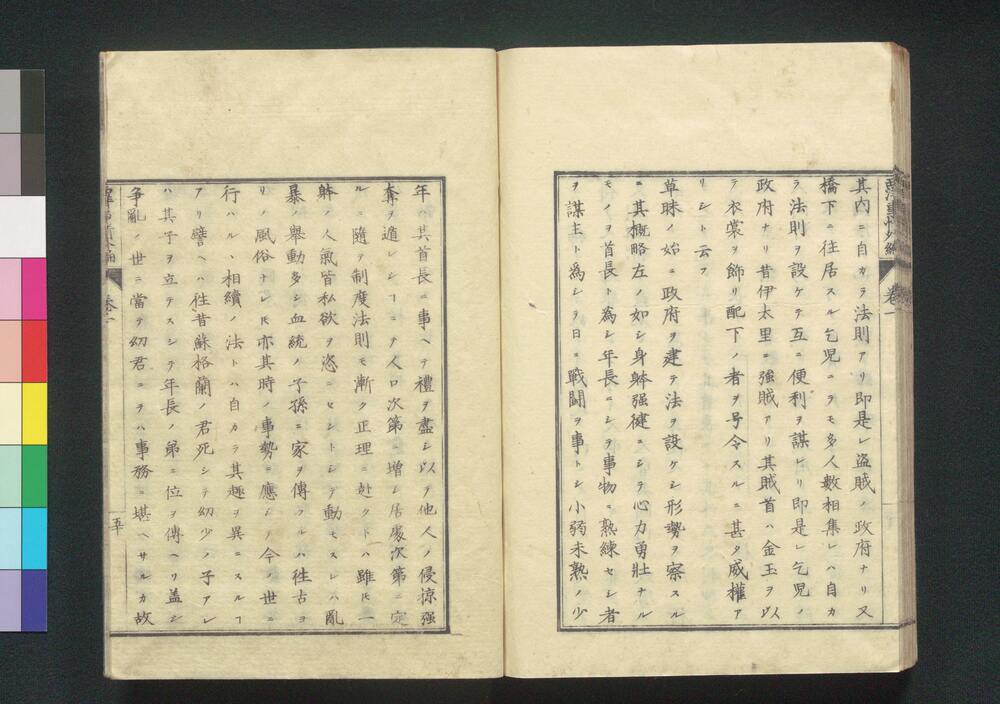 西洋事情外編 卷一
其内ニ自カラ法則アリ即是レ盗賊ノ政府ナリ又
橋下ニ徃居スル乞児ニテモ多人數相集レハ自カ
ラ法則ヲ設ケテ互ニ便利ヲ謀レリ即是レ乞児ノ
政府ナリ昔伊太里ニ強賊アリ其賊首ハ金玉ヲ以
テ衣裳ヲ飾リ配下ノ者ヲ号令スルニ甚タ威權ア
リシト云フ
草昧ノ始ニ政府ヲ建テ法ヲ設ケシ形勢ヲ察スル
ニ其概略左ノ如シ身躰强健ニシテ心力勇壯ナル
モノヲ首長ト為シ年長ニシテ事物ニ熟練セシ者
ヲ謀主ト為シテ日ニ戰鬪ヲ事トシ小弱未熟ノ少
年ハ其首長ニ事ヘテ禮ヲ盡シ以テ他人ノ侵掠强
奪ヲ遁レシヿニテ人口次第ニ増シ居處次第ニ定
ルニ隨テ制度法則モ漸ク正理ニ赴クトハ雖𪜈一
躰ノ人氣皆私欲ヲ恣ニセントシテ動モスレハ亂
暴ノ舉動多シ血統ノ子孫ニ家ヲ傳フルハ徃古ヨ
リノ風俗ナレ𪜈亦其時ノ事勢ニ應シテ今ノ世ニ
行ハルヽ相續ノ法トハ自カラ其趣ヲ異ニスルヿ
アリ譬ヘハ徃昔蘇格蘭ノ君死シテ幼少ノ子アレ
ハ其子ヲ立テスシテ年長ノ弟ニ位ヲ傳ヘリ蓋シ
争亂ノ世ニ當テ幼君ニテハ事務ニ堪ヘサルカ故
卷一
五